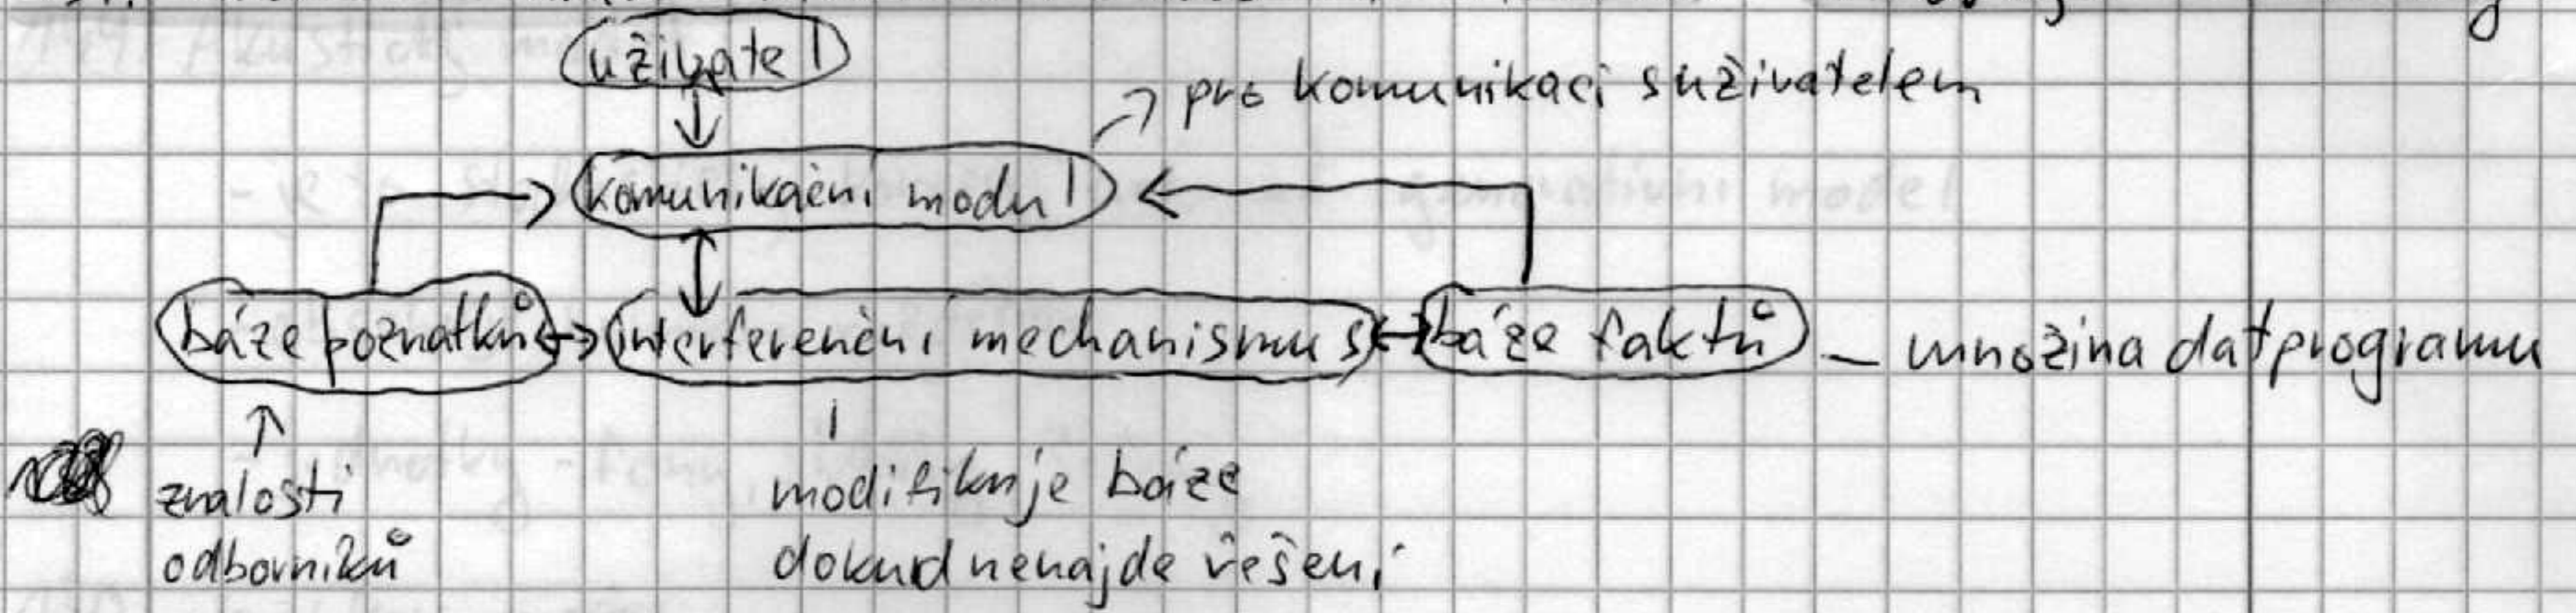 uživatel
pro komunikaci s uživatelem
komunikační modul
báze poznatků interferenční mechanismus báze faktů – množina dat programu
znalosti modifikuje báze
odborníků dokud nenajde řešení